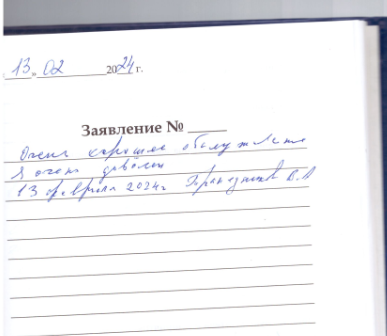 13 » 02 2024 г.
Заявление № ____
Очень хорошее обслуживание
Я очень доволен
13 февраля 2024г